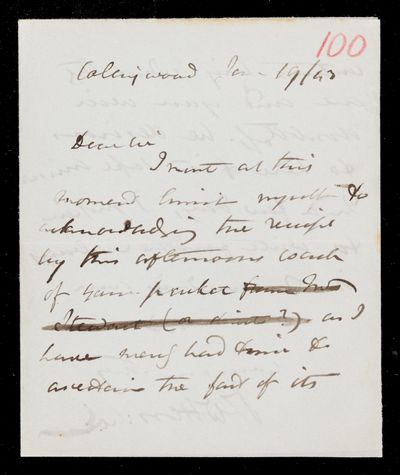 100
Collingwood Jan 19/43
Dear Sir
I must at this
moment limit myself to
acknowledging the receipt
by this afternoons coach
of your packet from Mr
Stewart (or ?) as I
have merely had time to
ascertain the fact of its